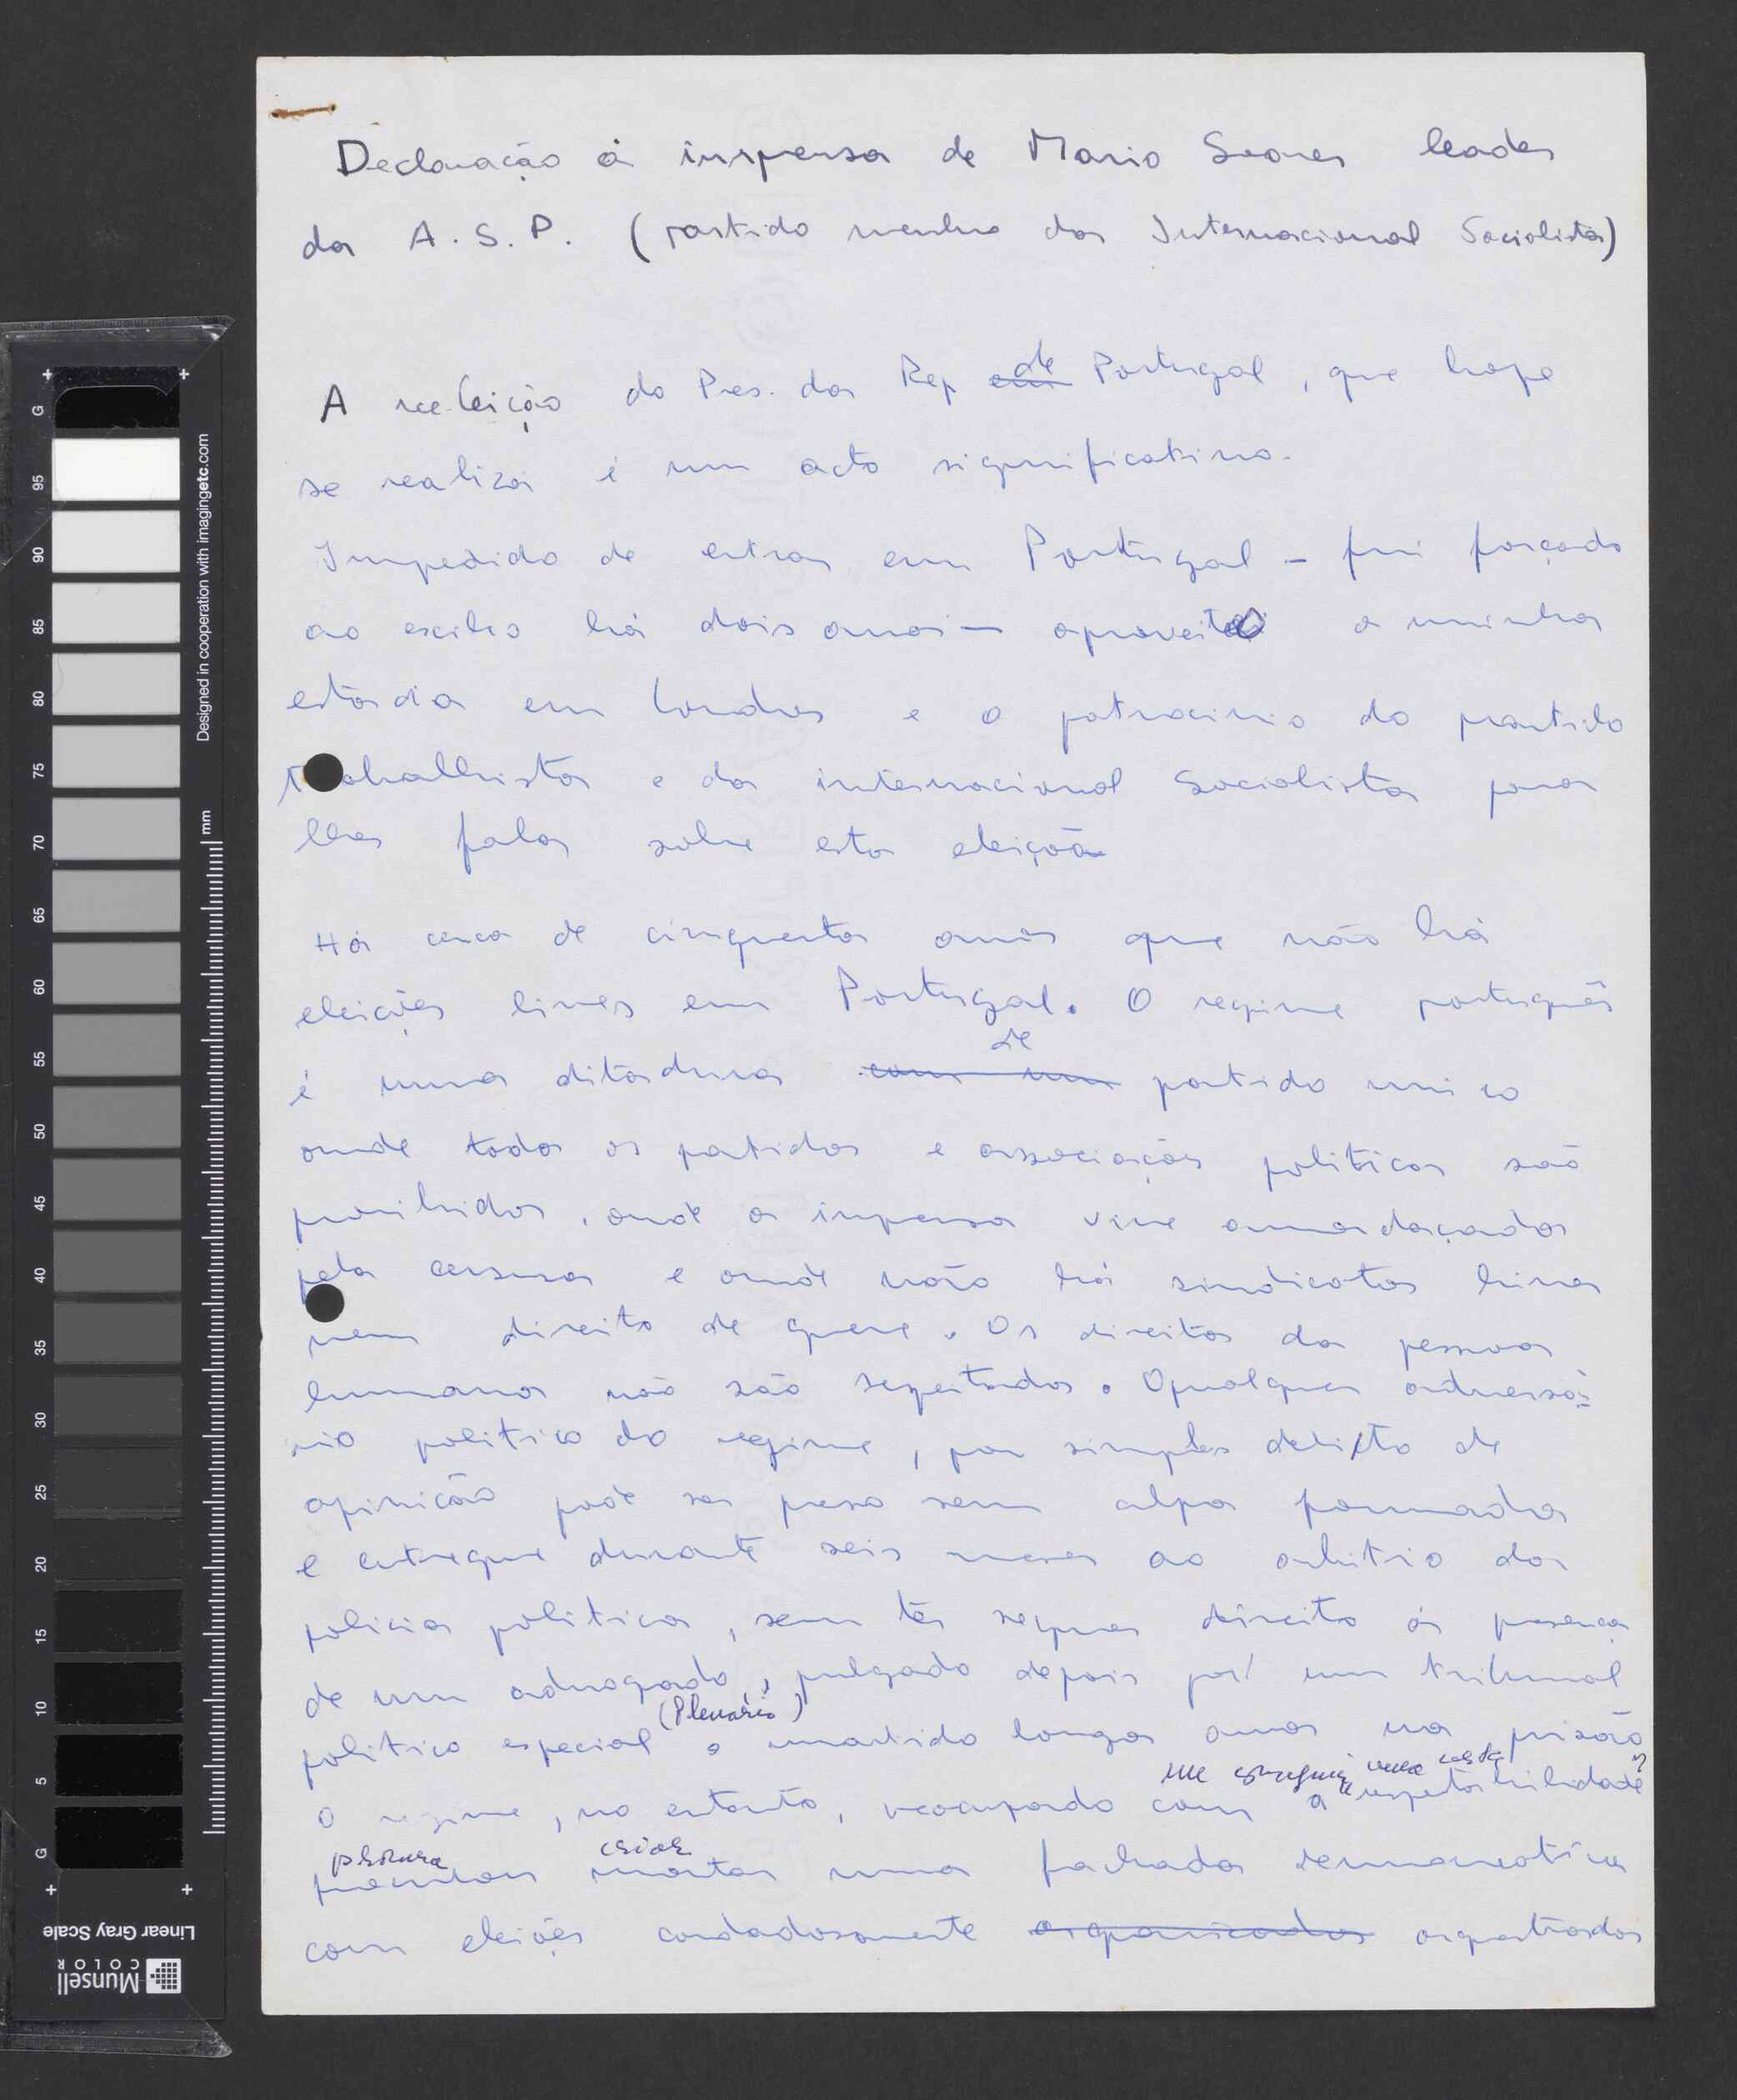 Declaração á imprensa de Mario Soares leader
da A.S.P. (partido membro da Internacional Socialista)
A reeleição do Pres. da Rep de Portugal, que hoje
se realiza é um acto significativo.
Impedido de entrar em Portugal - fui forçado
ao exilio há dois anos - aproveito a minha
estadia em Londres e o patrocinio do partido
trabalhista e da internacional Socialista para
lhes falar sobre esta eleição
Há cerca de cinquenta anos que não há
eleições livres em Portugal. O regime português
de
é uma ditadura com um partido unico
onde todos os partidos e associações politicas são
proibidos, onde a imprensa vive amordaçada
pela censura e onde não há sindicatos livres
nem direito de greve. Os direitos da pessoa
humana não são respeitados. Qualquer adversá-
rio politico do regime, por simples delito de
opinião pode ser preso sem culpa formada
e entregue durante seis meses ao arbitrio da
policia politica, sem ter sequer direito á presença
de um advogado, julgado depois por um tribunal
(Plenário)
politico especial e mantido longos anos na prisão
em conseguir uma certa
O regime, no entanto, preocupado com a "respeitabilidade"
procura criar
montar uma fachada democrática
com eleições cuidadosamente organizadas orquestradas
G 95 90 85 80 75 70 65 60 55 50 45 40 35 30 25 20 15 10 5 G
mm
Designed in cooperation with imagingetc.com
Linear Gray Scale
Munsell
COLOR